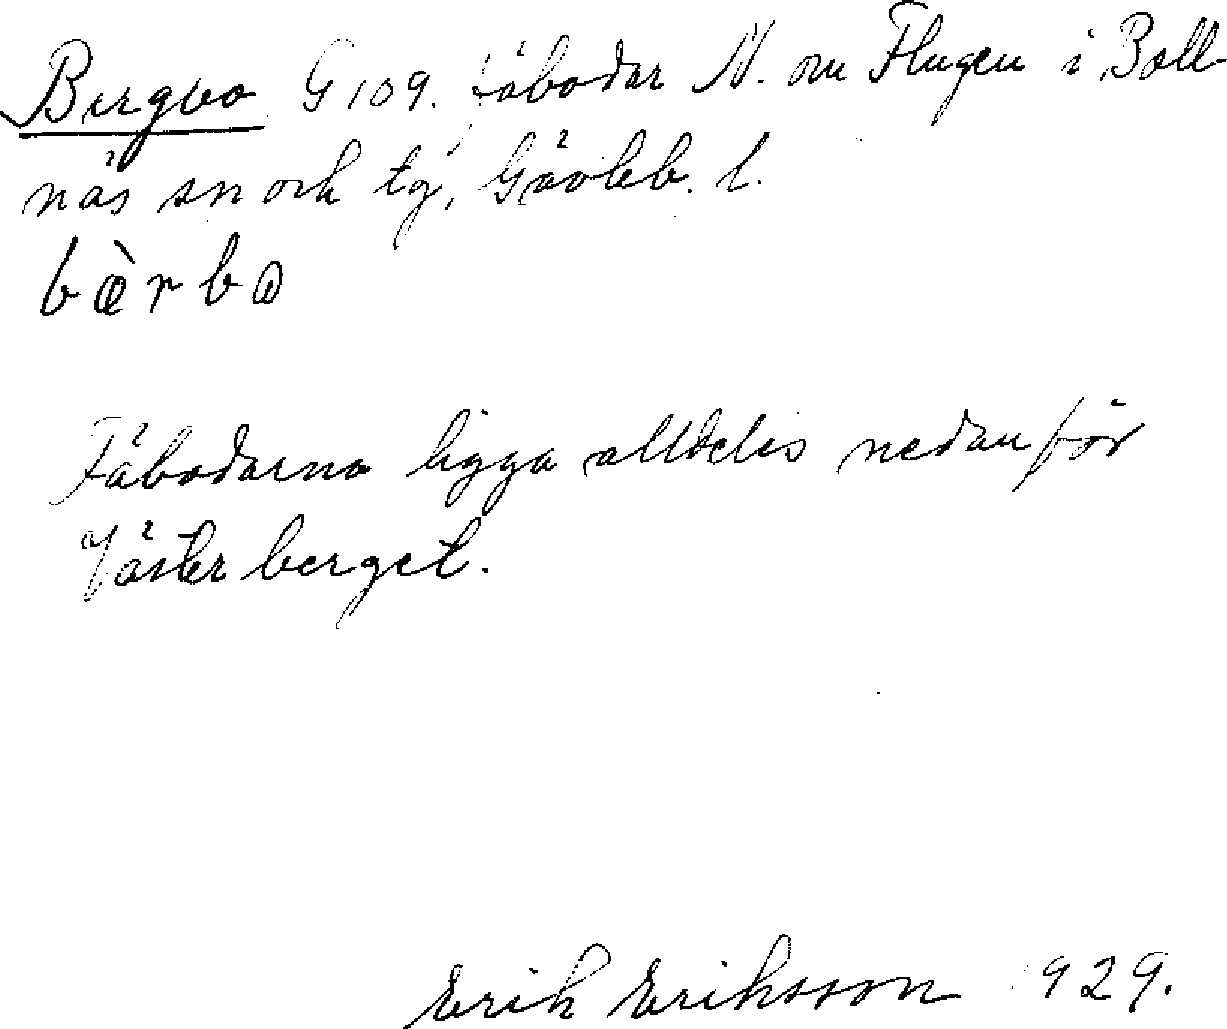 Bergbo G 109. Fäbodar N. om Flugen i Boll
näs sn och tg, Gävleb. l.
bàrbo
Fäbodarna ligga alldeles nedanför
Västerberget.
Erik Eriksson 1929.